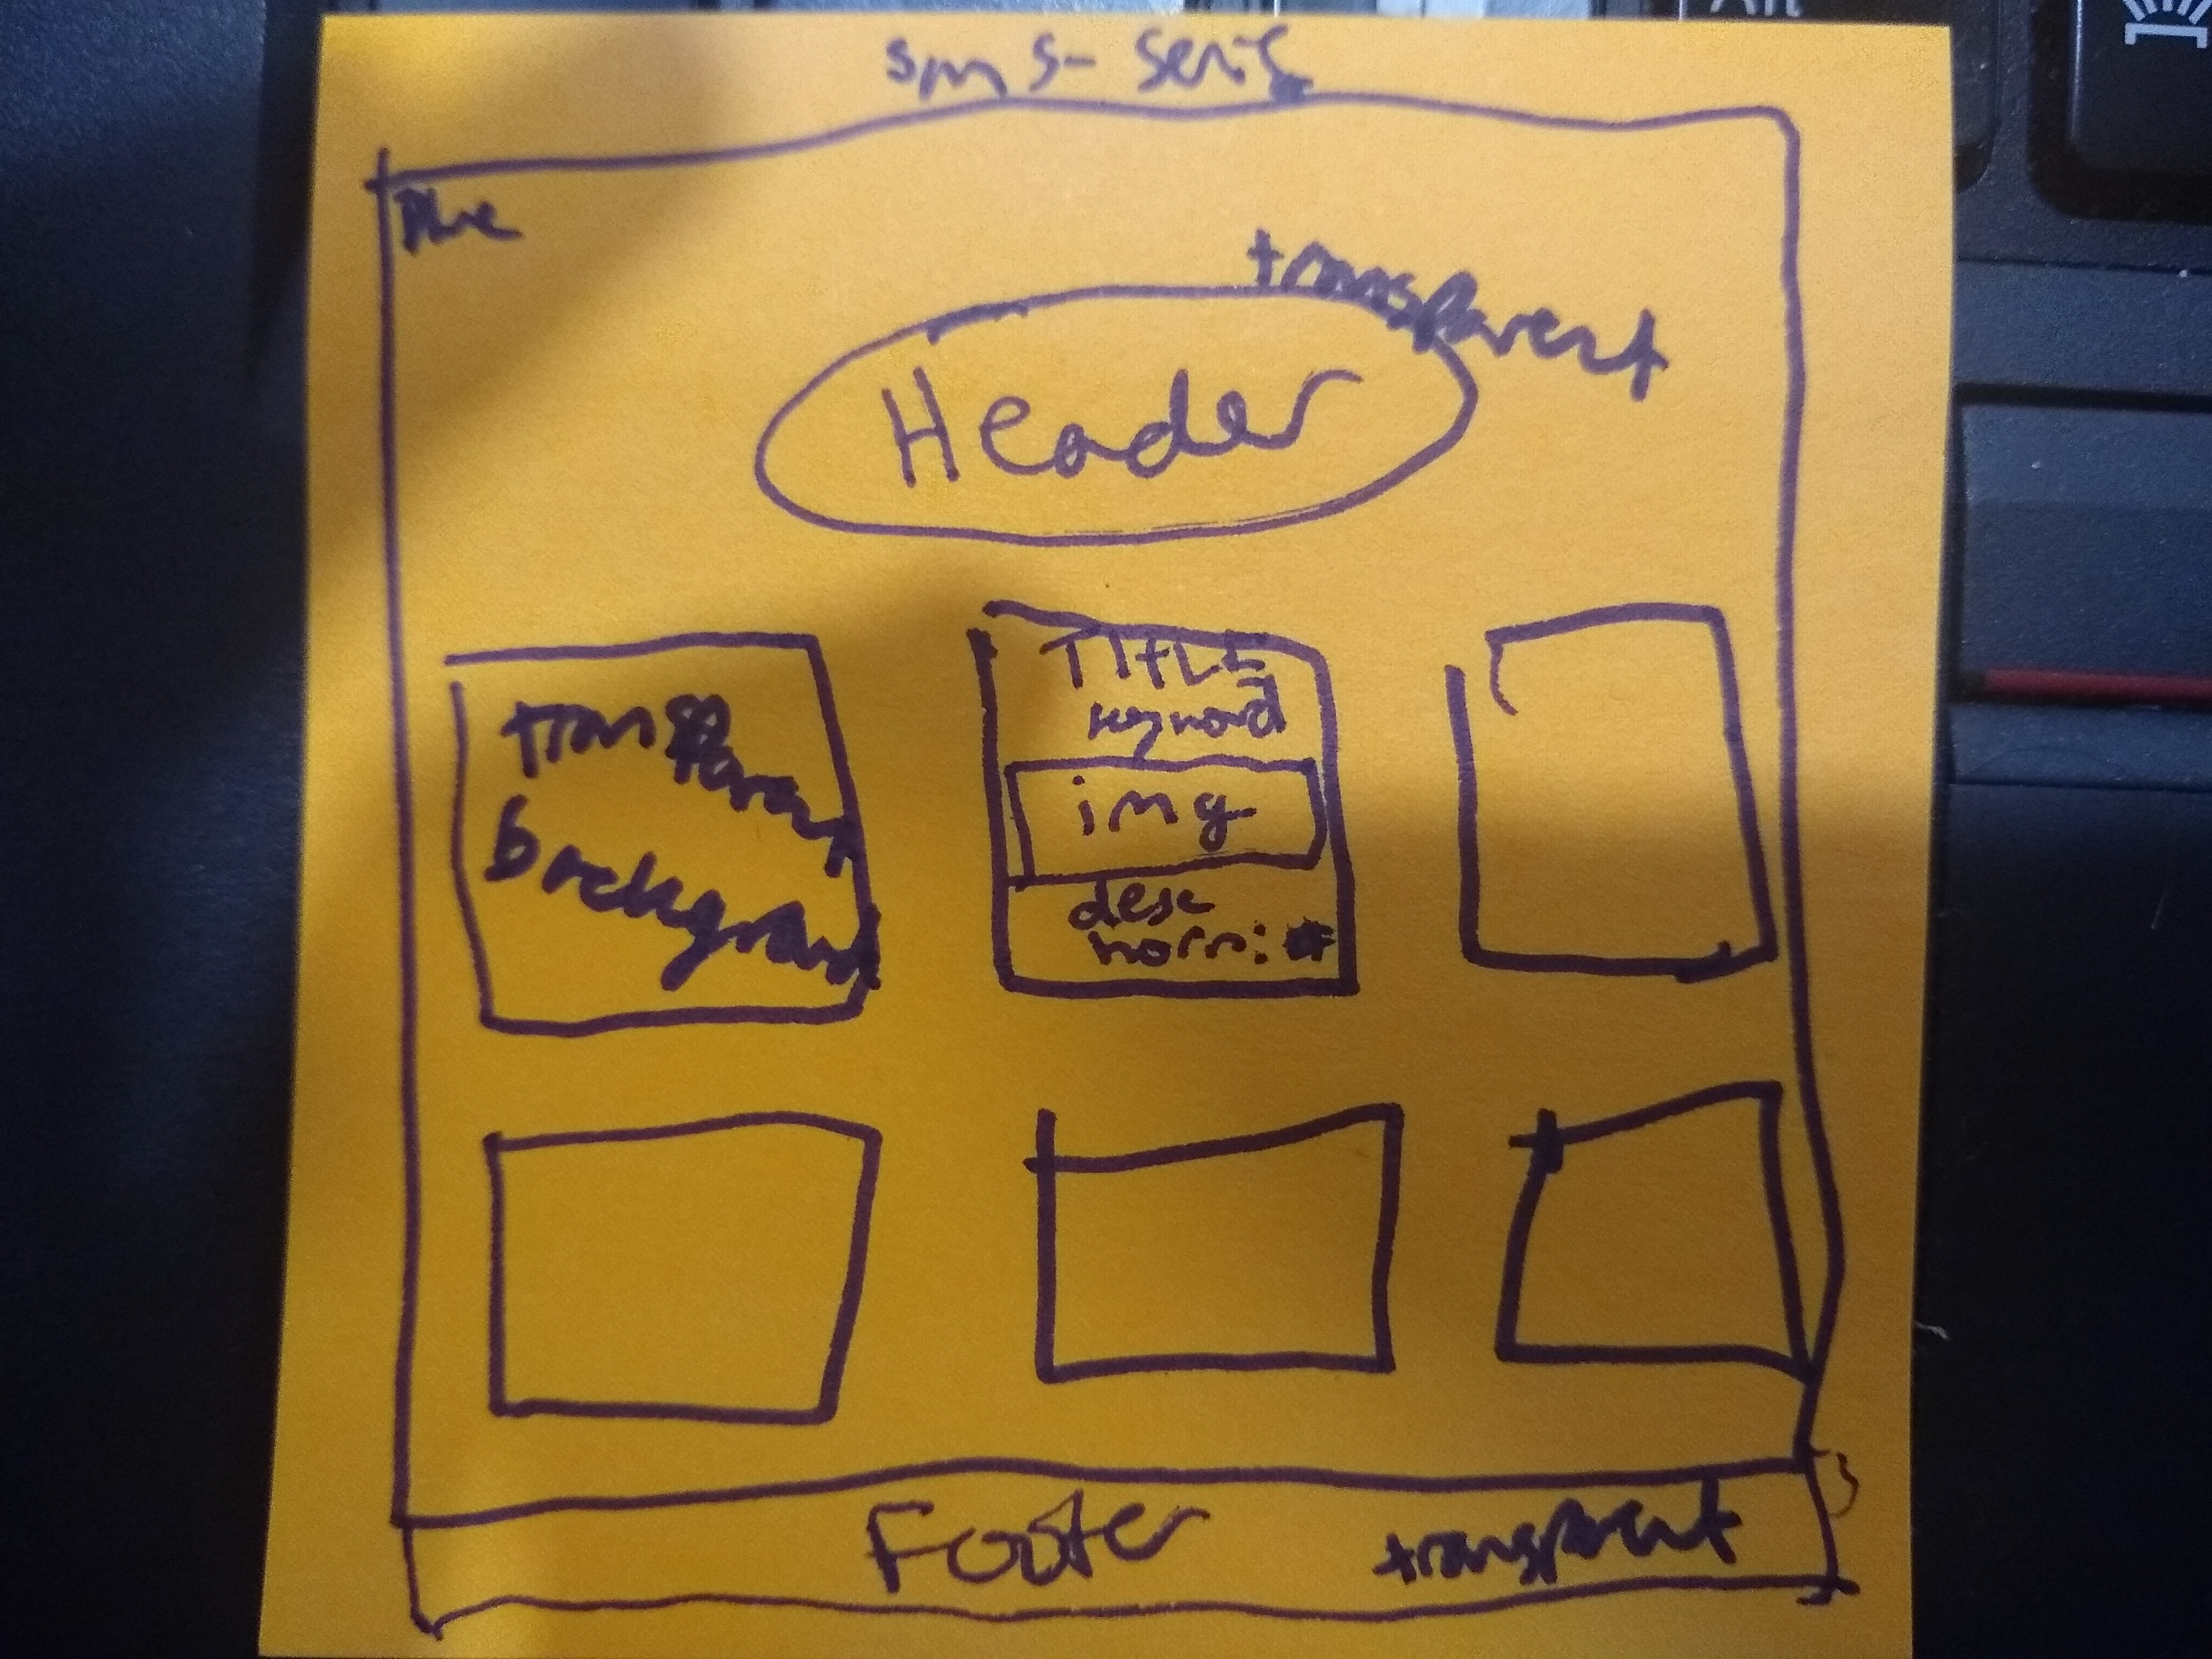 Alt
sans-serif
transparent
Header
transparent
background
TITLE
keyword
img
desc
horns: #
Footer
transparent